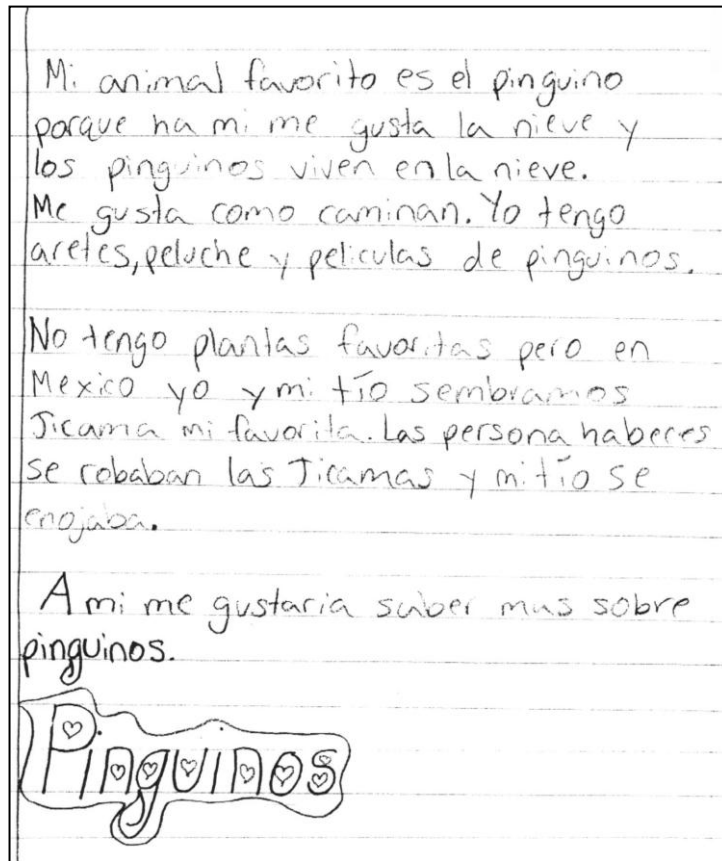 Mi animal favorito es el pinguino
porque ha mi me gusta la nieve y
los pinguinos viven en la nieve.
Me gusta como caminan. Yo tengo
aretes, peluche y peliculas de pinguinos.
No tengo plantas favoritas pero en
Mexico yo y mi tío sembramos
Jicama mi favorita. Las persona haberes
se robaban las Jicamas y mi tío se
enojaba.
A mi me gustaria saber mas sobre
pinguinos.
Pinguinos